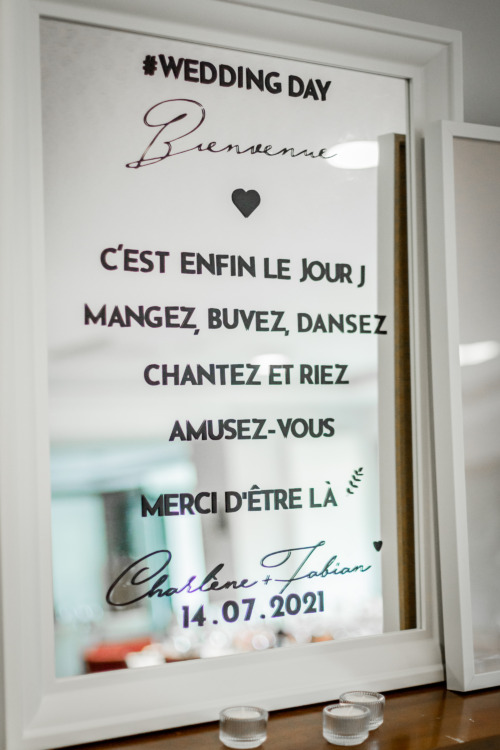 #WEDDING DAY
Bienvenue
C'EST ENFIN LE JOUR J
MANGEZ, BUVEZ, DANSEZ
CHANTEZ ET RIEZ
AMUSEZ-VOUS
MERCI D'ÊTRE LÀ
Charlène + Fabian
14.07.2021